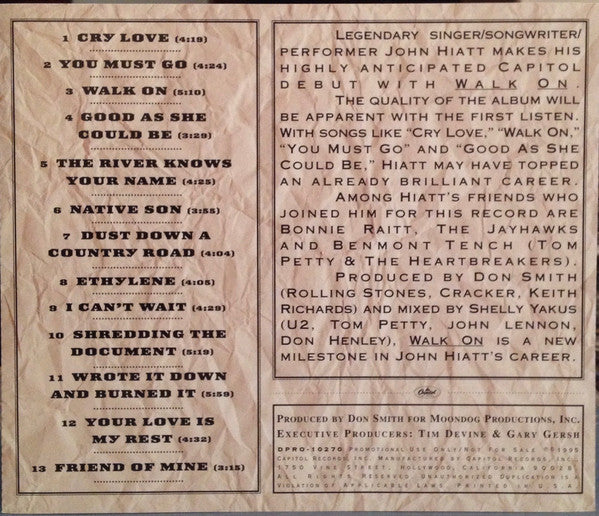 1 CRY LOVE (4:19)
2 YOU MUST GO (4:24)
3 WALK ON (5:10)
4 GOOD AS SHE
COULD BE (3:29)
5 THE RIVER KNOWS
YOUR NAME (4:25)
6 NATIVE SON (3:55)
7 DUST DOWN A
COUNTRY ROAD (4:04)
8 ETHYLENE (4:05)
9 I CAN'T WAIT (4:29)
10 SHREDDING THE
DOCUMENT (5:19)
11 WROTE IT DOWN
AND BURNED IT (5:59)
12 YOUR LOVE IS
MY REST (4:32)
13 FRIEND OF MINE (3:15)
LEGENDARY SINGER/SONGWRITER/
PERFORMER JOHN HIATT MAKES HIS
HIGHLY ANTICIPATED CAPITOL
DEBUT WITH WALK ON.
THE QUALITY OF THE ALBUM WILL
BE APPARENT WITH THE FIRST LISTEN.
WITH SONGS LIKE "CRY LOVE," "WALK ON,"
"YOU MUST GO" AND "GOOD AS SHE
COULD BE," HIATT MAY HAVE TOPPED
AN ALREADY BRILLIANT CAREER.
AMONG HIATT'S FRIENDS WHO
JOINED HIM FOR THIS RECORD ARE
BONNIE RAITT, THE JAYHAWKS
AND BENMONT TENCH (TOM
PETTY & THE HEARTBREAKERS).
PRODUCED BY DON SMITH
(ROLLING STONES, CRACKER, KEITH
RICHARDS) AND MIXED BY SHELLY YAKUS
(U2, TOM PETTY, JOHN LENNON,
DON HENLEY), WALK ON IS A NEW
MILESTONE IN JOHN HIATT'S CAREER.
Capitol
PRODUCED BY DON SMITH FOR MOONDOG PRODUCTIONS, INC.
EXECUTIVE PRODUCERS: TIM DEVINE & GARY GERSH
DPRO-10270 PROMOTIONAL USE ONLY/NOT FOR SALE ©1995
CAPITOL RECORDS, INC. MANUFACTURED BY CAPITOL RECORDS, INC.,
1750 VINE STREET, HOLLYWOOD, CALIFORNIA 90028.
ALL RIGHTS RESERVED. UNAUTHORIZED DUPLICATION IS A
VIOLATION OF APPLICABLE LAWS. PRINTED IN U.S.A.